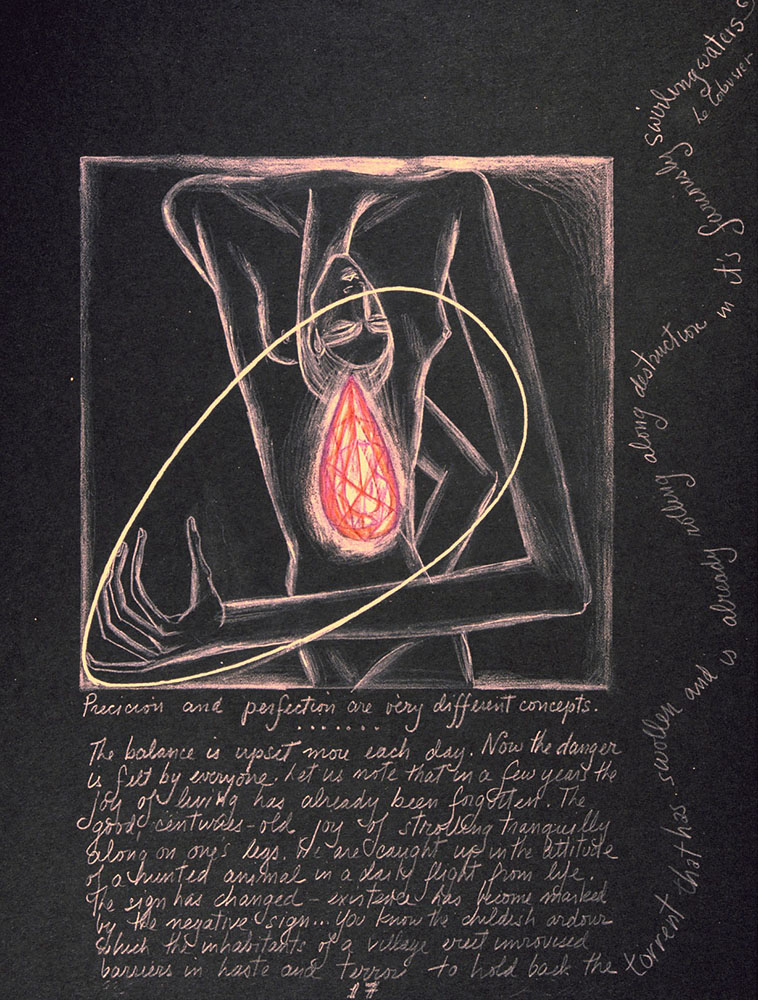 Precicion and perfection are very different concepts.
The balance is upset more each day. Now the danger
is felt by everyone. Let us note that in a few years the
joy of living has already been forgotten. The
good centuries-old joy of strolling tranquilly
along on one's legs. We are caught up in the attitude
of a hunted animal in a daily flight from life.
The sign has changed - existence has become marked
by the negative sign... You know the childish ardour
which the inhabitants of a village erect
barriers in haste and terror to hold back the
torrent that has swollen and is already rolling along destruction in it's furiously swirling waters
Le Corbusier
17